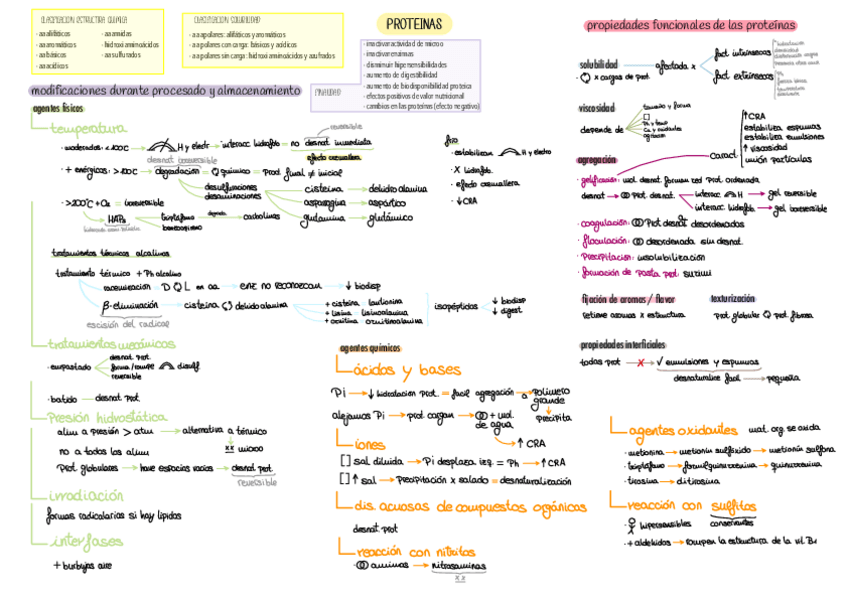 CLASIFICACIÓN ESTRUCTURA QUÍMICA
· aa alifáticos
· aa aromáticos
· aa básicos
· aa acídicos
· aa amidas
· hidroxi aminoácidos
· aa sulfurados
CLASIFICACIÓN SOLUBILIDAD
· aa apolares: alifáticos y aromáticos
· aa polares con carga: básicos y acídicos
· aa polares sin carga: hidroxi aminoácidos y azufrados
PROTEINAS
· inactivar actividad de micro o
· inactivar enzimas
· disminuir hipersensibilidades
· aumento de digestibilidad
· aumento de biodisponibilidad proteica
· efectos positivos de valor nutricional
· cambios en las proteínas (efecto negativo)
FINALIDAD
modificaciones durante procesado y almacenamiento
agentes físicos
temperatura
· moderados: <100ºC → H y electr → interacc hidrofób → no desnat inmediata
reversible
desnat irreversible
efecto cremallera
· + enérgicos: >100ºC → degradación = químico = prod final ≠ inicial
desulfuraciones
desaminaciones
cisteína → dehidroalanina
asparagina → aspártico
glutamina → glutámico
· >200ºC + Ox = irreversible
HAPs
triptófano
degrada
carbolinas
frío
· estabilizan H y electro
· X hidrofób.
· efecto cremallera
· ↓ CRA
tratamientos térmicos alcalinos
tratamiento térmico + Ph alcalino
racemización D L en aa → enz no reconozcan → ↓ biodisp
β-eliminación → cisteína dehidroalanina
escisión del radical
+ cisteína lantionina
+ lisina lisinoalanina
+ ornitina ornitinoalanina
isopéptidos
↓ biodisp
↓ digest
tratamientos mecánicos
· empastado
desnat prot.
forma/rompe disulf
reversible
· batido → desnat prot
Presión hidrostática
alim a presión > atm → alternativa a térmico
xx micoo
no a todos los alim
Prot globulares → have espacios vacíos → desnat prot
reversible
irradiación
formas radicalarias si hay lípidos
interfases
+ burbujas aire
agentes químicos
ácidos y bases
Pi → ↓ hidratacion prot. = fácil agregación a polímero grande
precipita
alejamos Pi → prot cargan → + mol. de agua
↑ CRA
iones
[] sal diluida → Pi desplaza izq = Ph → ↑ CRA
[] ↑ sal → precipitación x salado = desnaturalización
dis. acuosas de compuestos orgánicos
desnat. prot
reacción con nitritos
· aminas → nitrosaminas
xx
propiedades funcionales de las proteínas
solubilidad
· x cargas de prot.
afectada x
fact intrínsecos
fact extrínsecos
viscosidad
depende de
tamaño y forma
[]
Ph y temp
Ca y oxidantes
caract.
↑ CRA
estabiliza espumas
estabiliza emulsiones
↑ viscosidad
unión partículas
agregación
· gelificación: mol desnat forman red prot. ordenada
desnat → prot desnat.
interacc H → gel reversible
interacc hidrofób. → gel irreversible
· coagulación: prot desnat desordenadas
· floculación: desordenada sin desnat.
· Precipitación: insolubilización
· formación de pasta prot: surimi
fijación de aromas / flavor
retiene aromas x estructura
texturización
prot globular prot fibrosa
propiedades interficiales
todas prot → ✓ emulsiones y espumas
desnaturalice fácil → pequeña
agentes oxidantes mat. org. se oxida
· metionina → metionin sulfóxido → metionin sulfona
· triptófano → formilquinurenina → quinurenina
· tirosina → ditirosina
reacción con sulfitos
hipersensibles
conservantes
· + aldehídos → rompen la estructura de la vit. B1